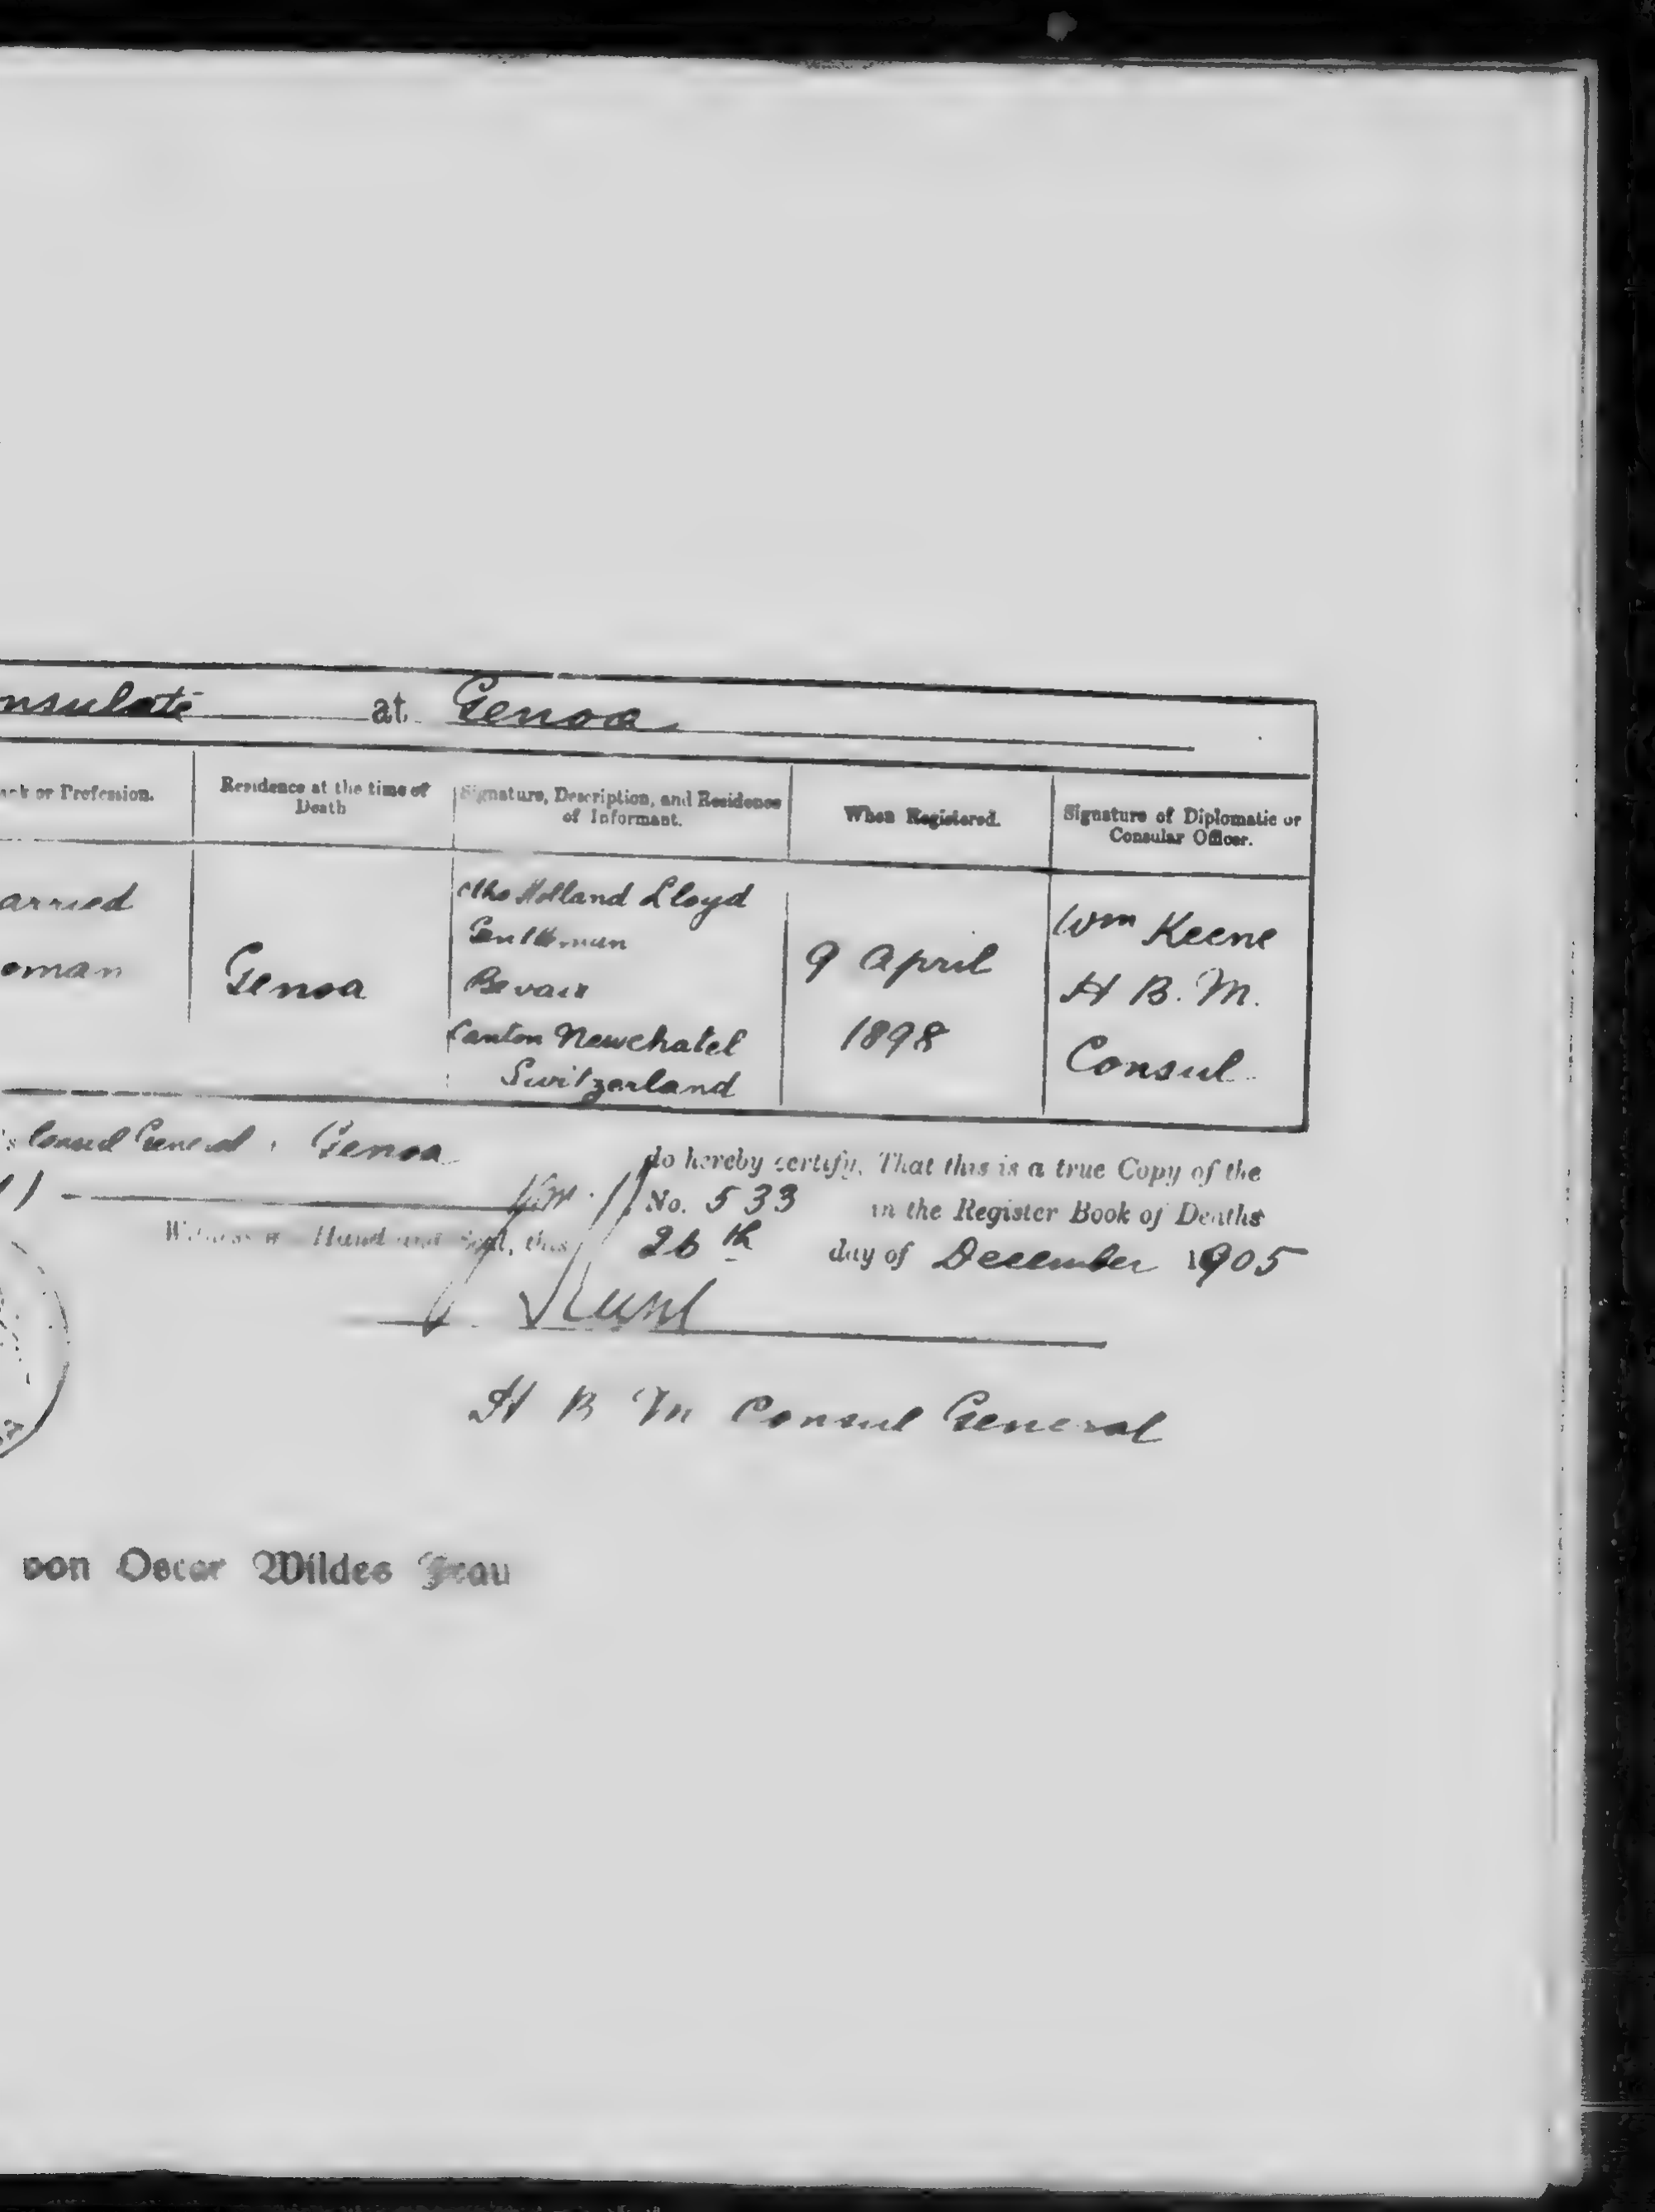 nsulate at Genoa
or Profession.
Residence at the time of
Death
Signature, Description, and Residence
of Informant.
When Registered.
Signature of Diplomatic or
Consular Officer.
arried
oman
Genoa
Otho Holland Lloyd
Gentleman
Bevaix
Canton Newchatel
Switzerland
9 April
1898
Wm Keene
H B. M.
Consul
's Consul General, Genoa do hereby certify, That this is a true Copy of the
No. 533 in the Register Book of Deaths
Witness Hand and Seal, this 26th day of December 1905
H B M Consul General
von Oscar Wildes Frau